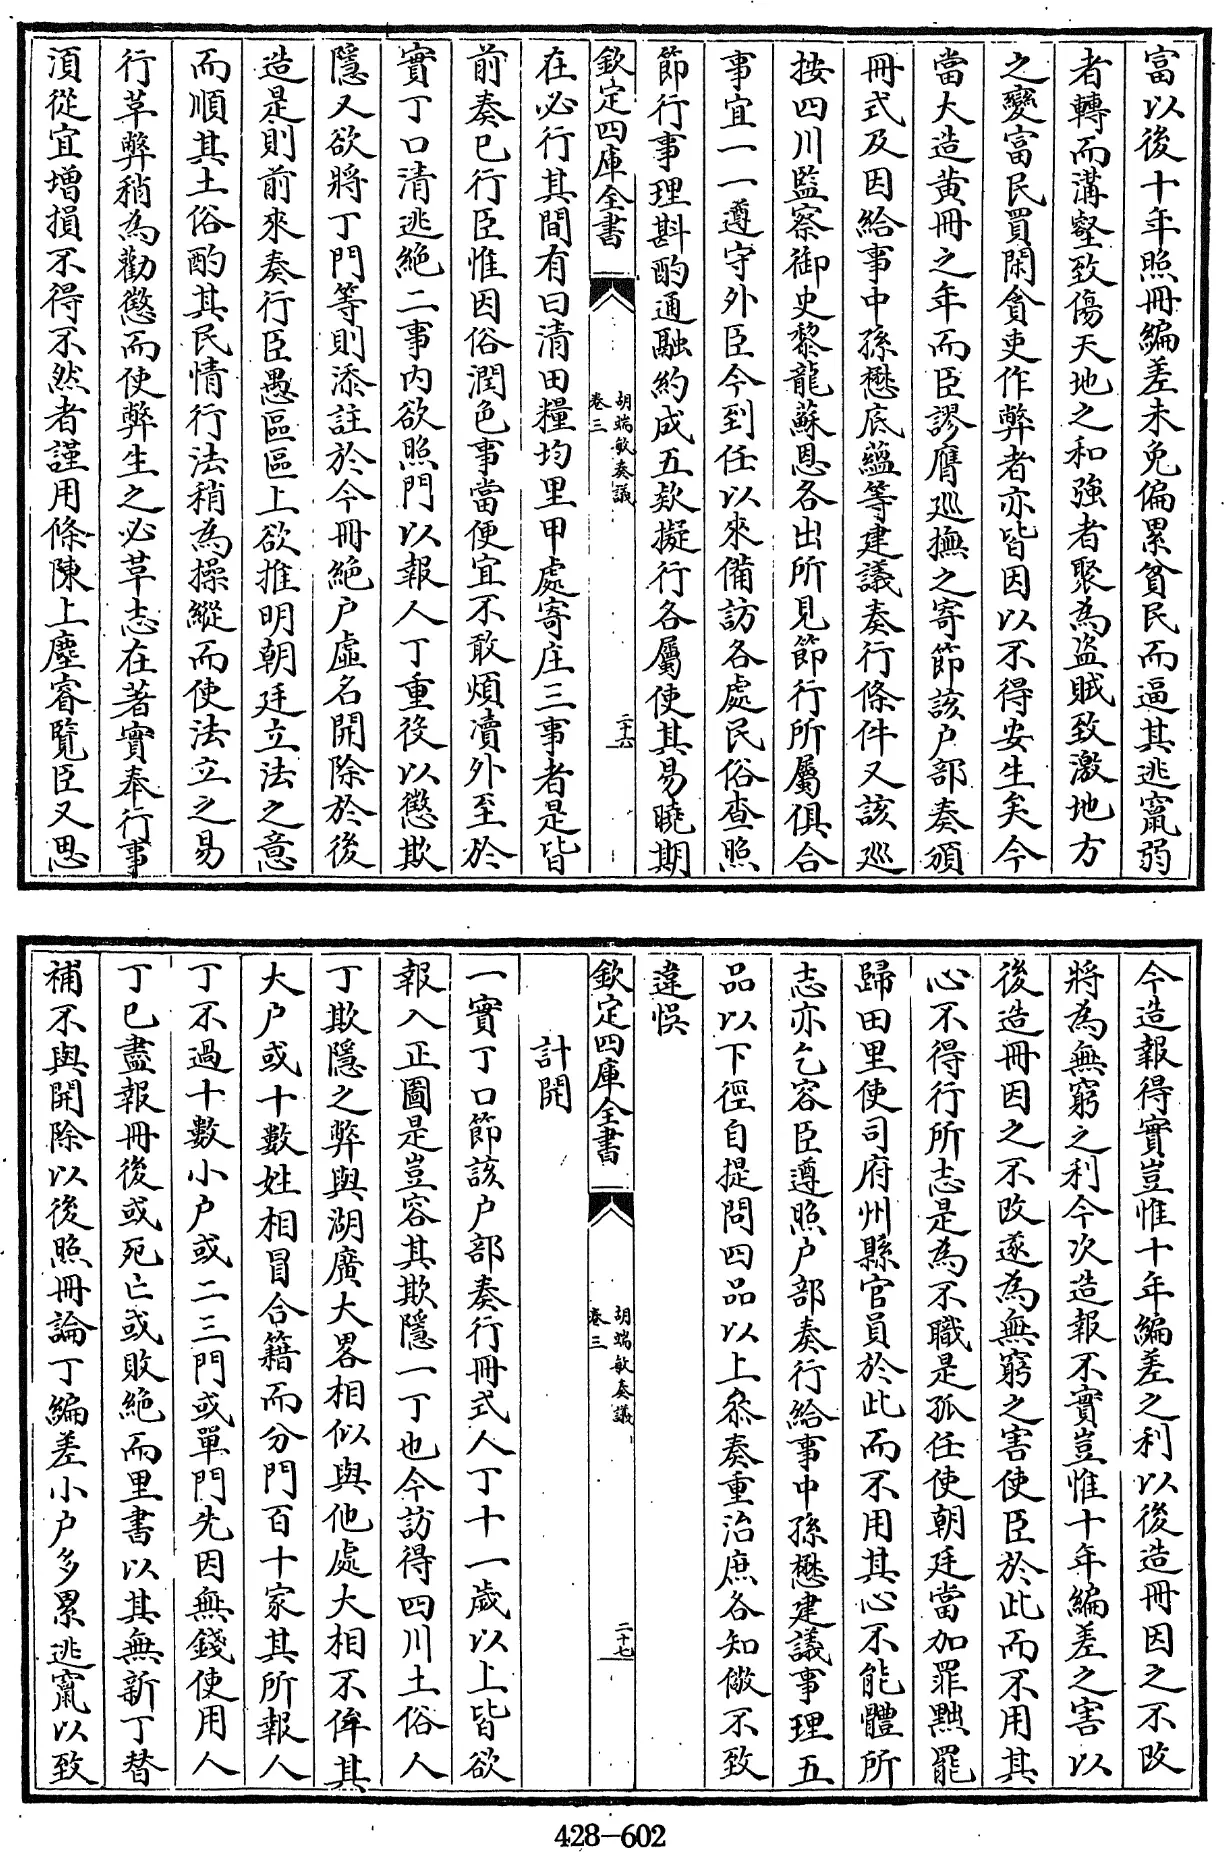 富以後十年照冊編差未免偏累貧民而逼其逃竄弱
者轉而溝壑致傷天地之和強者聚為盜賊致激地方
之變富民買閑貪吏作弊者亦皆因以不得安生矣今
當大造黄冊之年而臣謬膺巡撫之寄節該户部奏頒
冊式及因給事中孫懋底蘊等建議奏行條件又該巡
按四川監察御史黎龍蘇恩各出所見節行所屬俱合
事宜一一遵守外臣今到任以來備訪各處民俗查照
節行事理斟酌通融約成五欵擬行各屬使其易曉期
欽定四庫全書
胡端敏奏議
卷三
二十六
在必行其間有曰清田糧均里甲處寄庄三事者是皆
前奏已行臣惟因俗潤色事當便宜不敢煩瀆外至於
實丁口清逃絶二事内欲照門以報人丁重役以懲欺
隱又欲將丁門等則添註於今冊絶户虛名開除於後
造是則前來奏行臣愚區區上欲推明朝廷立法之意
而順其土俗酌其民情行法稍為操縱而使法立之易
行革弊稍為勸懲而使弊生之必革志在著實奉行事
湏從宜增損不得不然者謹用條陳上塵睿覽臣又思
今造報得實豈惟十年編差之利以後造冊因之不改
將為無窮之利今次造報不實豈惟十年編差之害以
後造冊因之不改遂為無窮之害使臣於此而不用其
心不得行所志是為不職是孤任使朝廷當加罪黜罷
歸田里使司府州縣官員於此而不用其心不能體所
志亦乞容臣遵照户部奏行給事中孫懋建議事理五
品以下徑自提問四品以上叅奏重治庶各知儆不致
違悞
欽定四庫全書
胡端敏奏議
卷三
二十七
計開
一實丁口節該户部奏行冊式人丁十一歲以上皆欲
報入正圖是豈容其欺隱一丁也今訪得四川土俗人
丁欺隱之弊與湖廣大畧相似與他處大相不侔其
大户或十數姓相冒合籍而分門百十家其所報人
丁不過十數小户或二三門或單門先因無錢使用人
丁已盡報冊後或死亡或敗絶而里書以其無新丁替
補不與開除以後照冊論丁編差小户多累逃竄以致
428-602